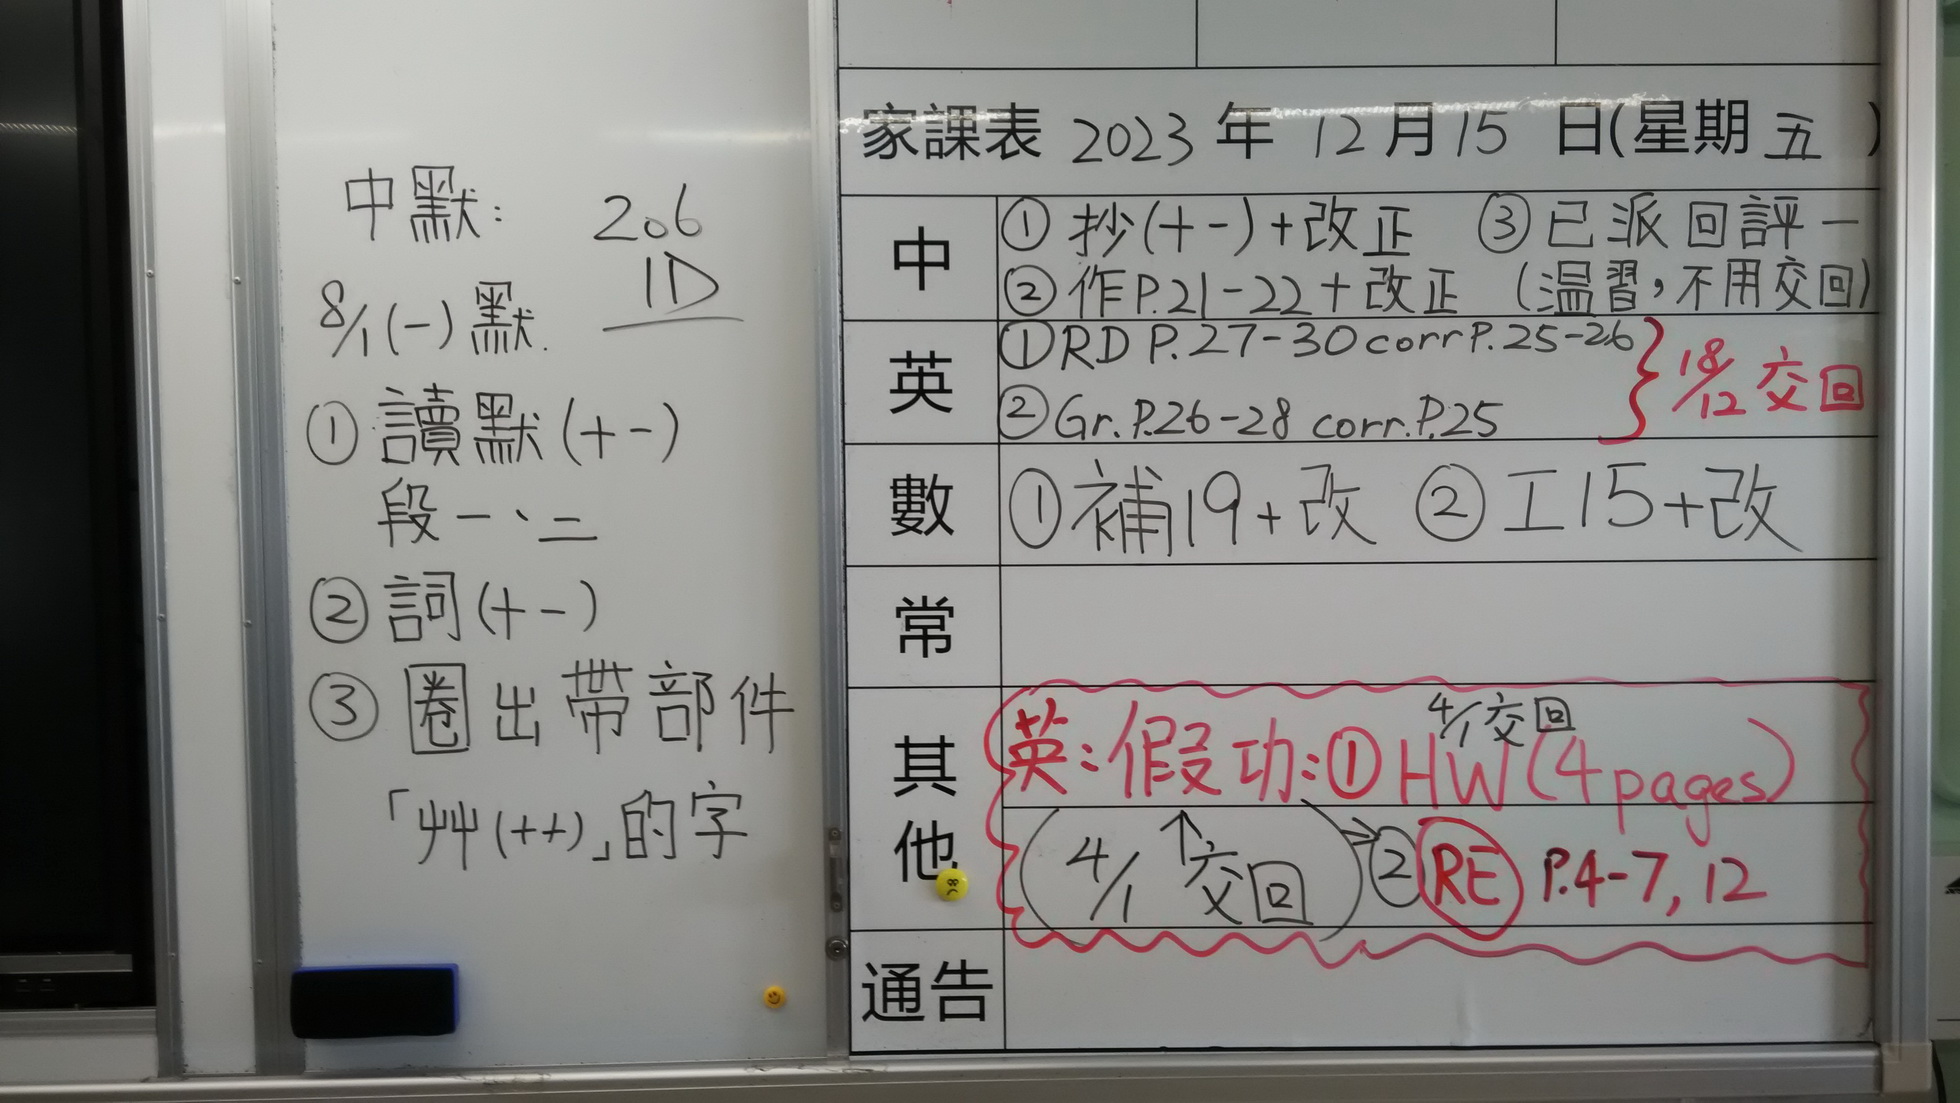 中默： 206
1D
8/1(一)默.
① 讀默(十一)
段一、二
② 詞(十一)
③ 圈出帶部件
「艸(++)」的字
家課表 2023 年 12 月 15 日(星期 五 )
中
① 抄(十一)+改正 ③ 已派回評一
② 作P.21-22+改正 (温習，不用交回)
英
① RD P.27-30 corr P.25-26
② Gr. P.26-28 corr. P.25
18/12 交回
數
① 補19+改 ② 工15+改
常
其他
4/1交回
英：假功：① HW (4 pages)
(4/1 ↑交回) → ② RE P.4-7, 12
通告